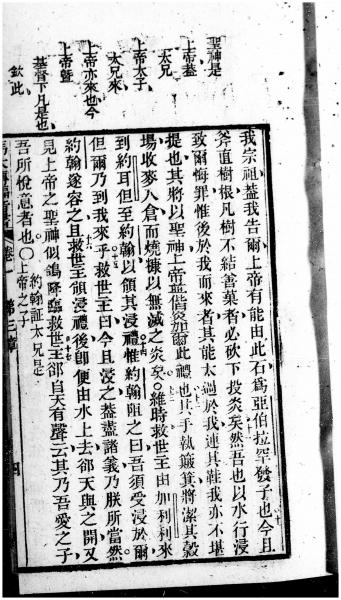 聖神是
上帝蓋
太兄
上帝太子
太兄來
上帝亦來也今
上帝暨
基督下凡是也
欽此
我宗祖蓋我告爾上帝有能由此石爲亞伯拉罕發子也今且
斧直樹根凡樹不結善菓者必砍下投炎矣然吾也以水行浸
致爾悔罪惟後於我而來者其能太過於我連其鞋我亦不堪
提也其將以聖神上帝曁借炎加爾此禮也其手執簸箕將潔其穀
場收麥入倉而燒糠以無滅之炎矣○維時救世主由加利利來
到約耳但至約翰以領其浸禮惟約翰阻之曰吾須受浸於爾
但爾乃到我來乎救世主曰今且浸之蓋盡諸義乃朕所當然
約翰遂容之且救世主領浸禮後卽便由水上去郤天與之開又
見上帝之聖神似鴿降臨救世主郤自天有聲云其乃吾愛之子
吾所悅意者也○約翰証太兄是上帝之子
卷一 第三章 四